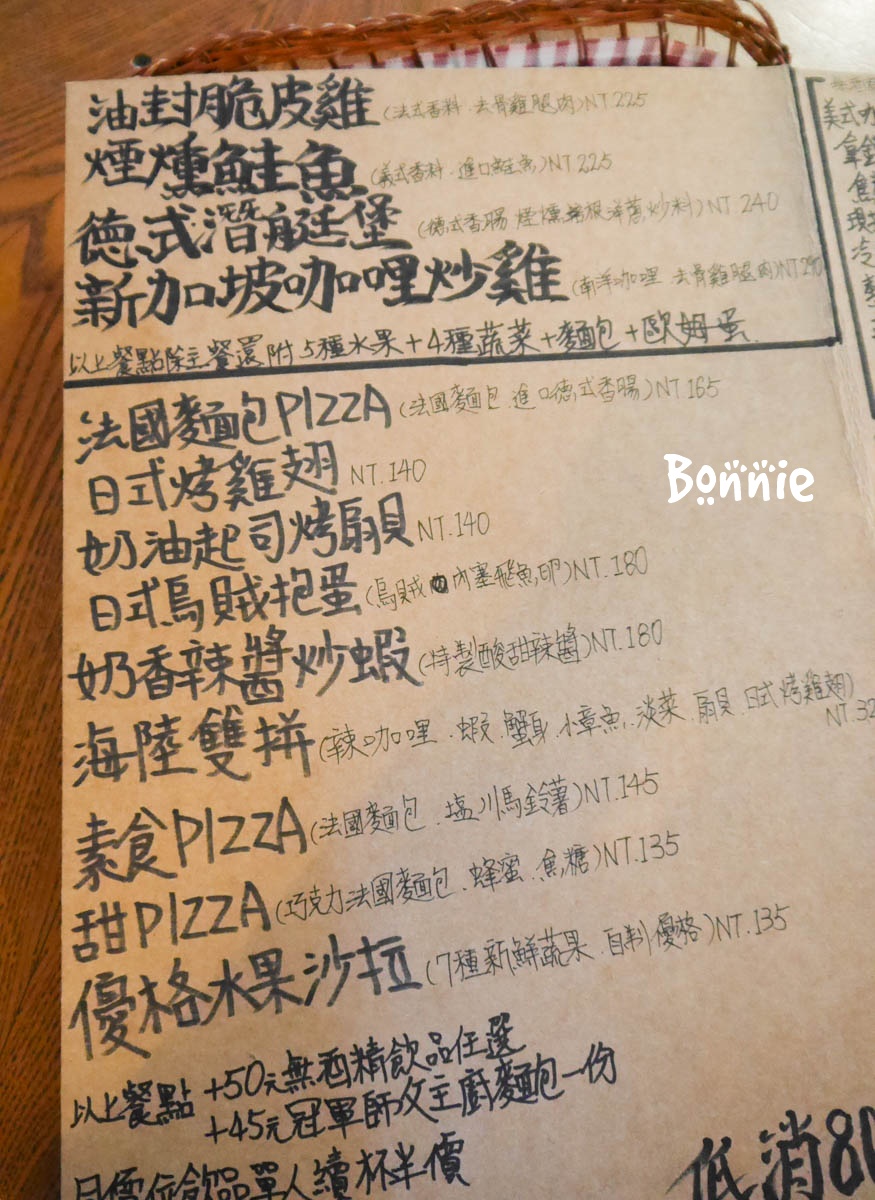 油封脆皮雞(法式香料.去骨雞腿肉)NT 225
煙燻鮭魚(義式香料.進口鮭魚)NT 225
德式潛艇堡(德式香腸 煙燻培根洋蔥炒料)NT 240
新加坡咖哩炒雞(南洋咖哩 去骨雞腿肉)NT 290
以上餐點除主餐還附5種水果+4種蔬菜+麵包+歐姆蛋.
法國麵包PIZZA(法國麵包.進口德式香腸)NT 165
日式烤雞翅 NT.140
奶油起司烤扇貝 NT.140
日式烏賊抱蛋(烏賊內塞飛魚卵)NT.180
奶香辣醬炒蝦(特製酸甜辣醬)NT.180
海陸雙拼(辣咖哩.蝦.蟹身.小章魚.淡菜.扇貝.日式烤雞翅)
NT.32
素食PIZZA(法國麵包.塩川馬鈴薯)NT.145
甜PIZZA(巧克力法國麵包.蜂蜜.焦糖)NT.135
優格水果沙拉(7種新鮮蔬果.自制優格)NT.135
以上餐點 +50元無酒精飲品任選
+45元冠軍師父主廚麵包一份
飲品單人續杯半價
低消80
美式
Bonnie